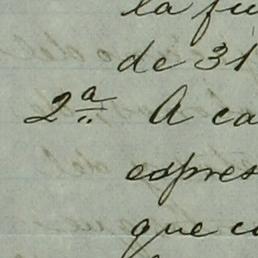 la fu
de 31
2ª A ca
expres
que c